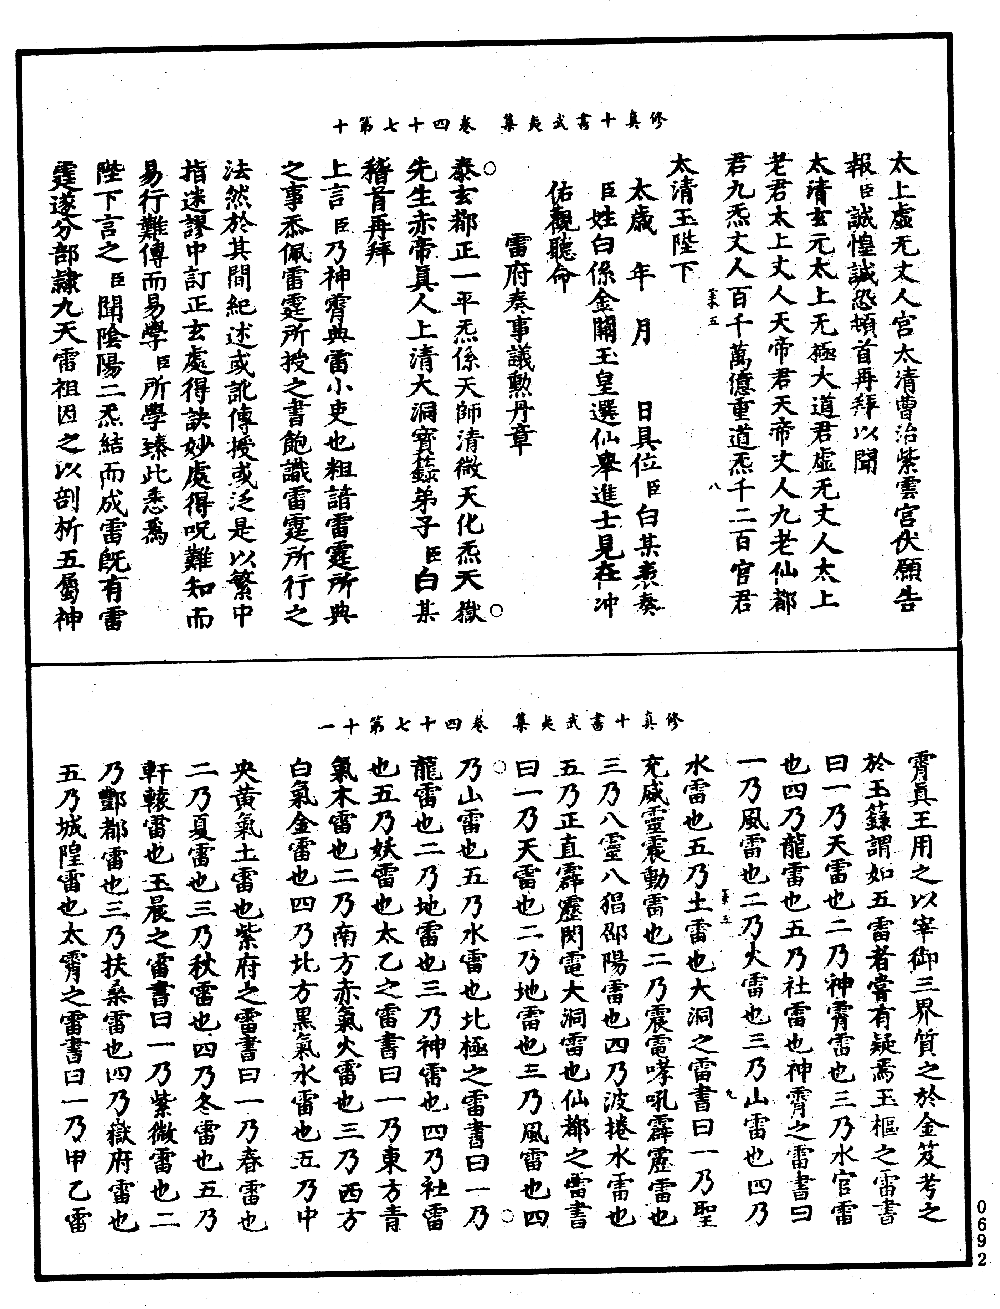 修真十書武夷集　卷四十七第十
太上虛无丈人宮太清曹治紫雲宮伏願告
報臣誠惶誠恐頓首再拜以聞
太清玄元太上无極大道君虛无丈人太上
老君太上丈人天帝君天帝丈人九老仙都
君九炁丈人百千萬億重道炁千二百官君
太清玉陛下
太歲　年　月　日具位臣白某表奏
臣姓白係金闕玉皇選仙舉進士見在冲
佑觀聽命
雷府奏事議勲丹章
泰玄都正一平炁係天師清微天化炁天獄
先生赤帝真人上清大洞寶籙弟子臣白某
稽首再拜
上言臣乃神霄典雷小吏也粗諳雷霆所典
之事忝佩雷霆所授之書飽識雷霆所行之
法然於其間紀述或訛傳授或泛是以繁中
指迷謬中訂正玄處得訣妙處得呪難知而
易行難傳而易學臣所學臻此悉爲
陛下言之臣聞陰陽二炁結而成雷旣有雷
霆遂分部隸九天雷祖因之以剖析五屬神
修真十書武夷集　卷四十七第十一
霄真王用之以宰御三界質之於金笈考之
於玉籙謂如五雷者嘗有疑焉玉樞之雷書
曰一乃天雷也二乃神霄雷也三乃水官雷
也四乃龍雷也五乃社雷也神霄之雷書曰
一乃風雷也二乃火雷也三乃山雷也四乃
水雷也五乃土雷也大洞之雷書曰一乃聖
充威靈震動雷也二乃震電哮吼霹靂雷也
三乃八靈八猖邵陽雷也四乃波捲水雷也
五乃正直霹靂閃電大洞雷也仙都之雷書
曰一乃天雷也二乃地雷也三乃風雷也四
乃山雷也五乃水雷也北極之雷書曰一乃
龍雷也二乃地雷也三乃神雷也四乃社雷
也五乃妖雷也太乙之雷書曰一乃東方青
氣木雷也二乃南方赤氣火雷也三乃西方
白氣金雷也四乃北方黑氣水雷也五乃中
央黃氣土雷也紫府之雷書曰一乃春雷也
二乃夏雷也三乃秋雷也四乃冬雷也五乃
軒轅雷也玉晨之雷書曰一乃紫微雷也二
乃酆都雷也三乃扶桑雷也四乃嶽府雷也
五乃城隍雷也太霄之雷書曰一乃甲乙雷
0692